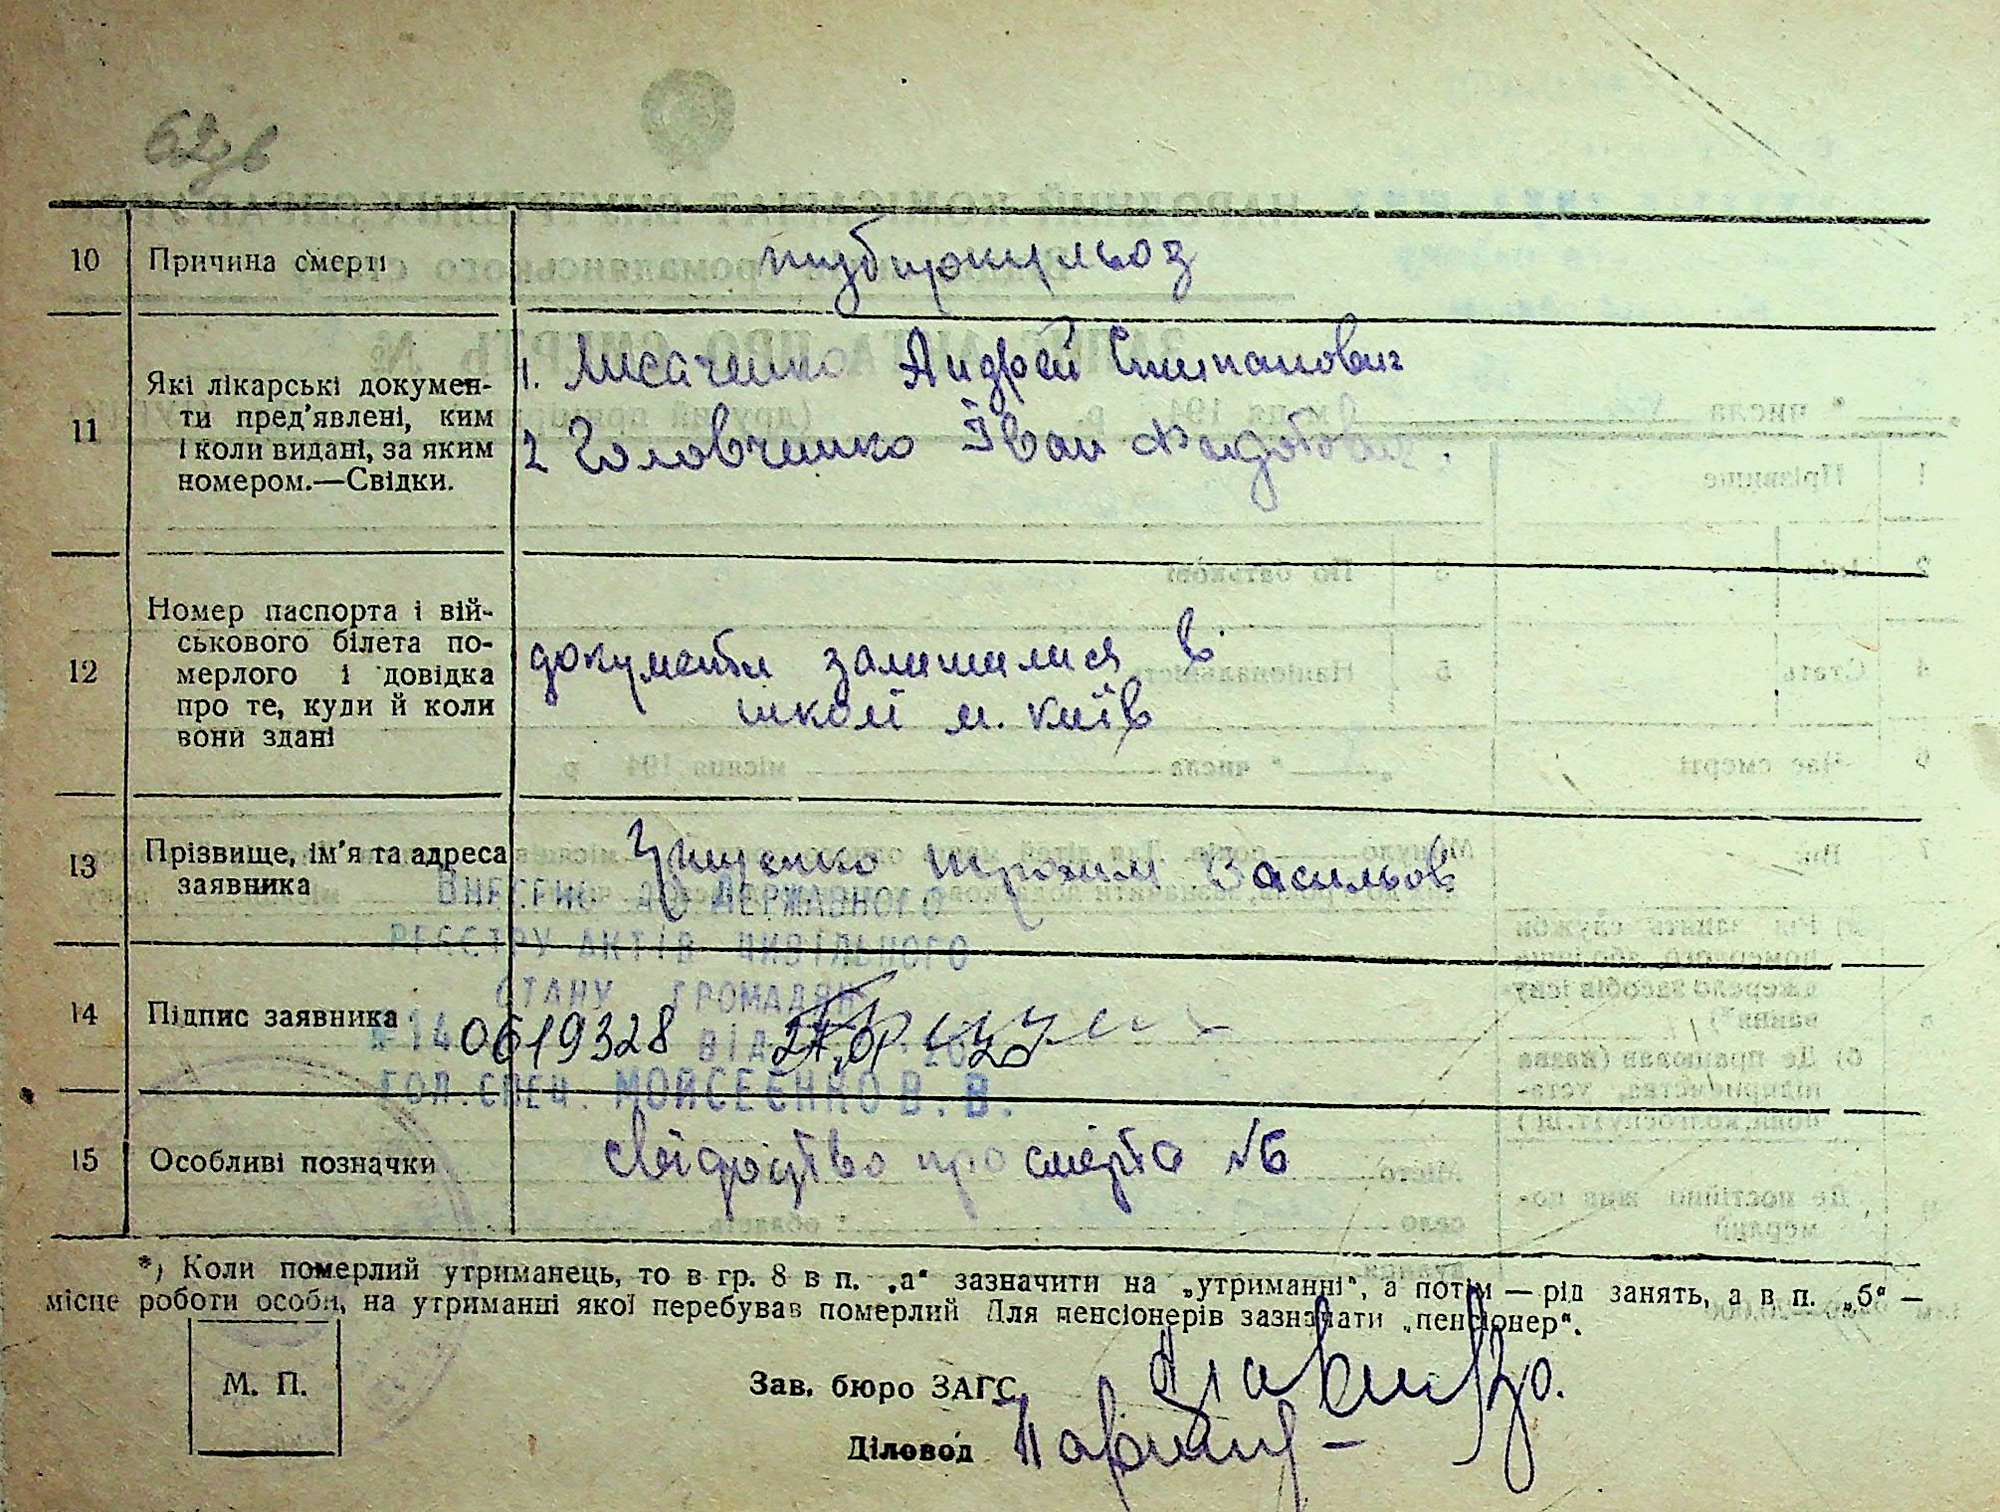 62зв
10 Причина смерті туберкульоз
11 Які лікарські докумен-
ти пред'явлені, ким
і коли видані, за яким
номером.—Свідки.
1. Лисаченко Андрей Степанович
2 Головченко Іван Федотович.
12 Номер паспорта і вій-
ськового білета по-
мерлого і довідка
про те, куди й коли
вони здані
документи залишилися в
школі м. Київ
13 Прізвище, ім'я та адреса
заявника
Трохим Васильов
ВНЕСЕНО ДО ДЕРЖАВНОГО
РЕЄСТРУ АКТІВ ЦИВІЛЬНОГО
СТАНУ ГРОМАДЯН
14 Підпис заявника
№140619328 ВІД
ГОЛ.СПЕЦ. МОЙСЕЄНКО В. В.
15 Особливі позначки свідоцтво про смерть №6
*) Коли померлий утриманець, то в гр. 8 в п. „а“ зазначити на „утриманні“, а потім — рід занять, а в п. „б“ —
місце роботи особи, на утриманні якої перебував померлий Для пенсіонерів зазначати „пенсіонер“.
М. П.
Зав. бюро ЗАГС
Діловод